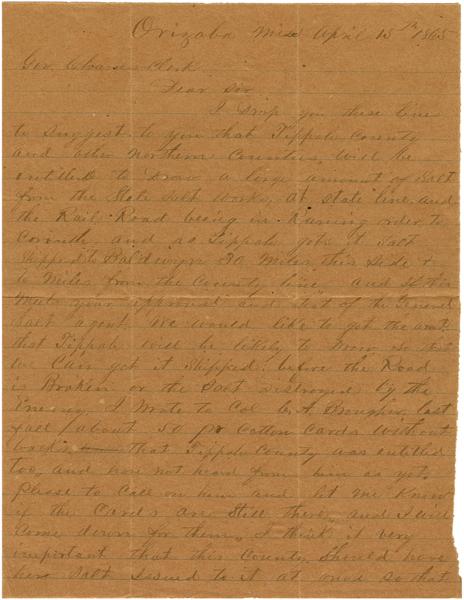 Orizaba Miss April 15th 1865
Gov. Charles Clark
Dear Sir
I Drop you these lines
to suggest to you that Tippah County
and other Northern Counties, will be
entitled to Draw a large amount of Salt
from the State Salt Works, at State line and
the Rail Road being in Runing order to
Corinth, and as Tippah gets it Salt
Shipped to Baldwyn 30 Miles this Side &
10 Miles from the County line and if this
Meets your approval and that of the General
Salt agent, We would like to get the amt.
that Tippah Will be likely to Draw so that
We Can get it Shipped before the Road
is Broken or the Salt Destroyed by the
Enemy, I Wrote to Col last
fall about 50 pr Cotton Cards Without
backs that Tippah County was entitled
too, and have not heard from him as yet.
Please to Call on him and let me Know
if the Cards are Still there, and I will
Come down for them, I think it very
important that this County Should have
her Salt Issued to it at once so that